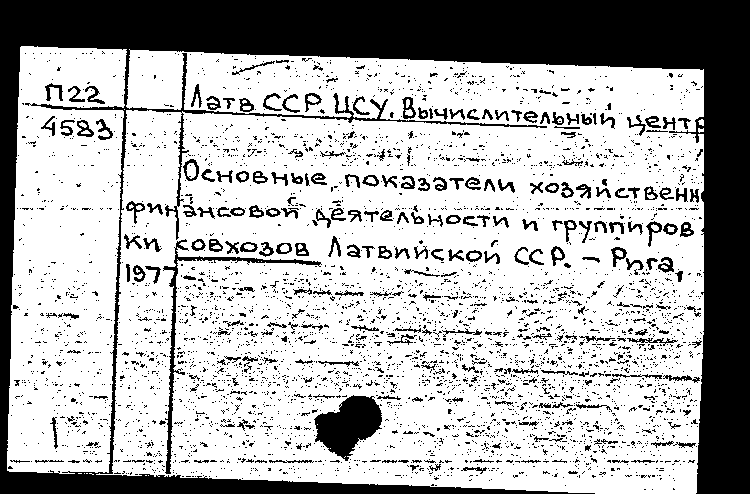 П22
4583
Латв ССР. ЦСУ. Вычислительный центр
Основные показатели хозяйственн
финансовой деятельности и группиров
ки совхозов Латвийской ССР. – Рига,
1977 –